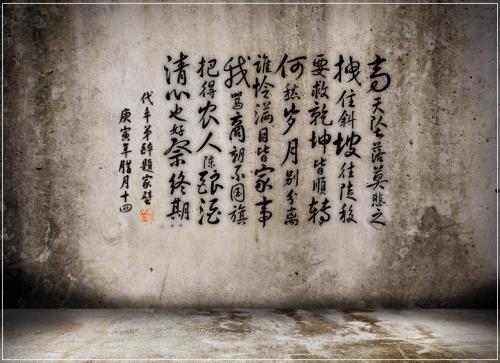 高天坠落莫悲之
拽住斜坡往陡移
要救乾坤皆顺转
何愁岁月别分离
谁怜满目皆家事
我骂商不国旗
把得农人陈酿酒
清心也好祭终期
代丰弟醉题家壁
庚寅年腊月十四